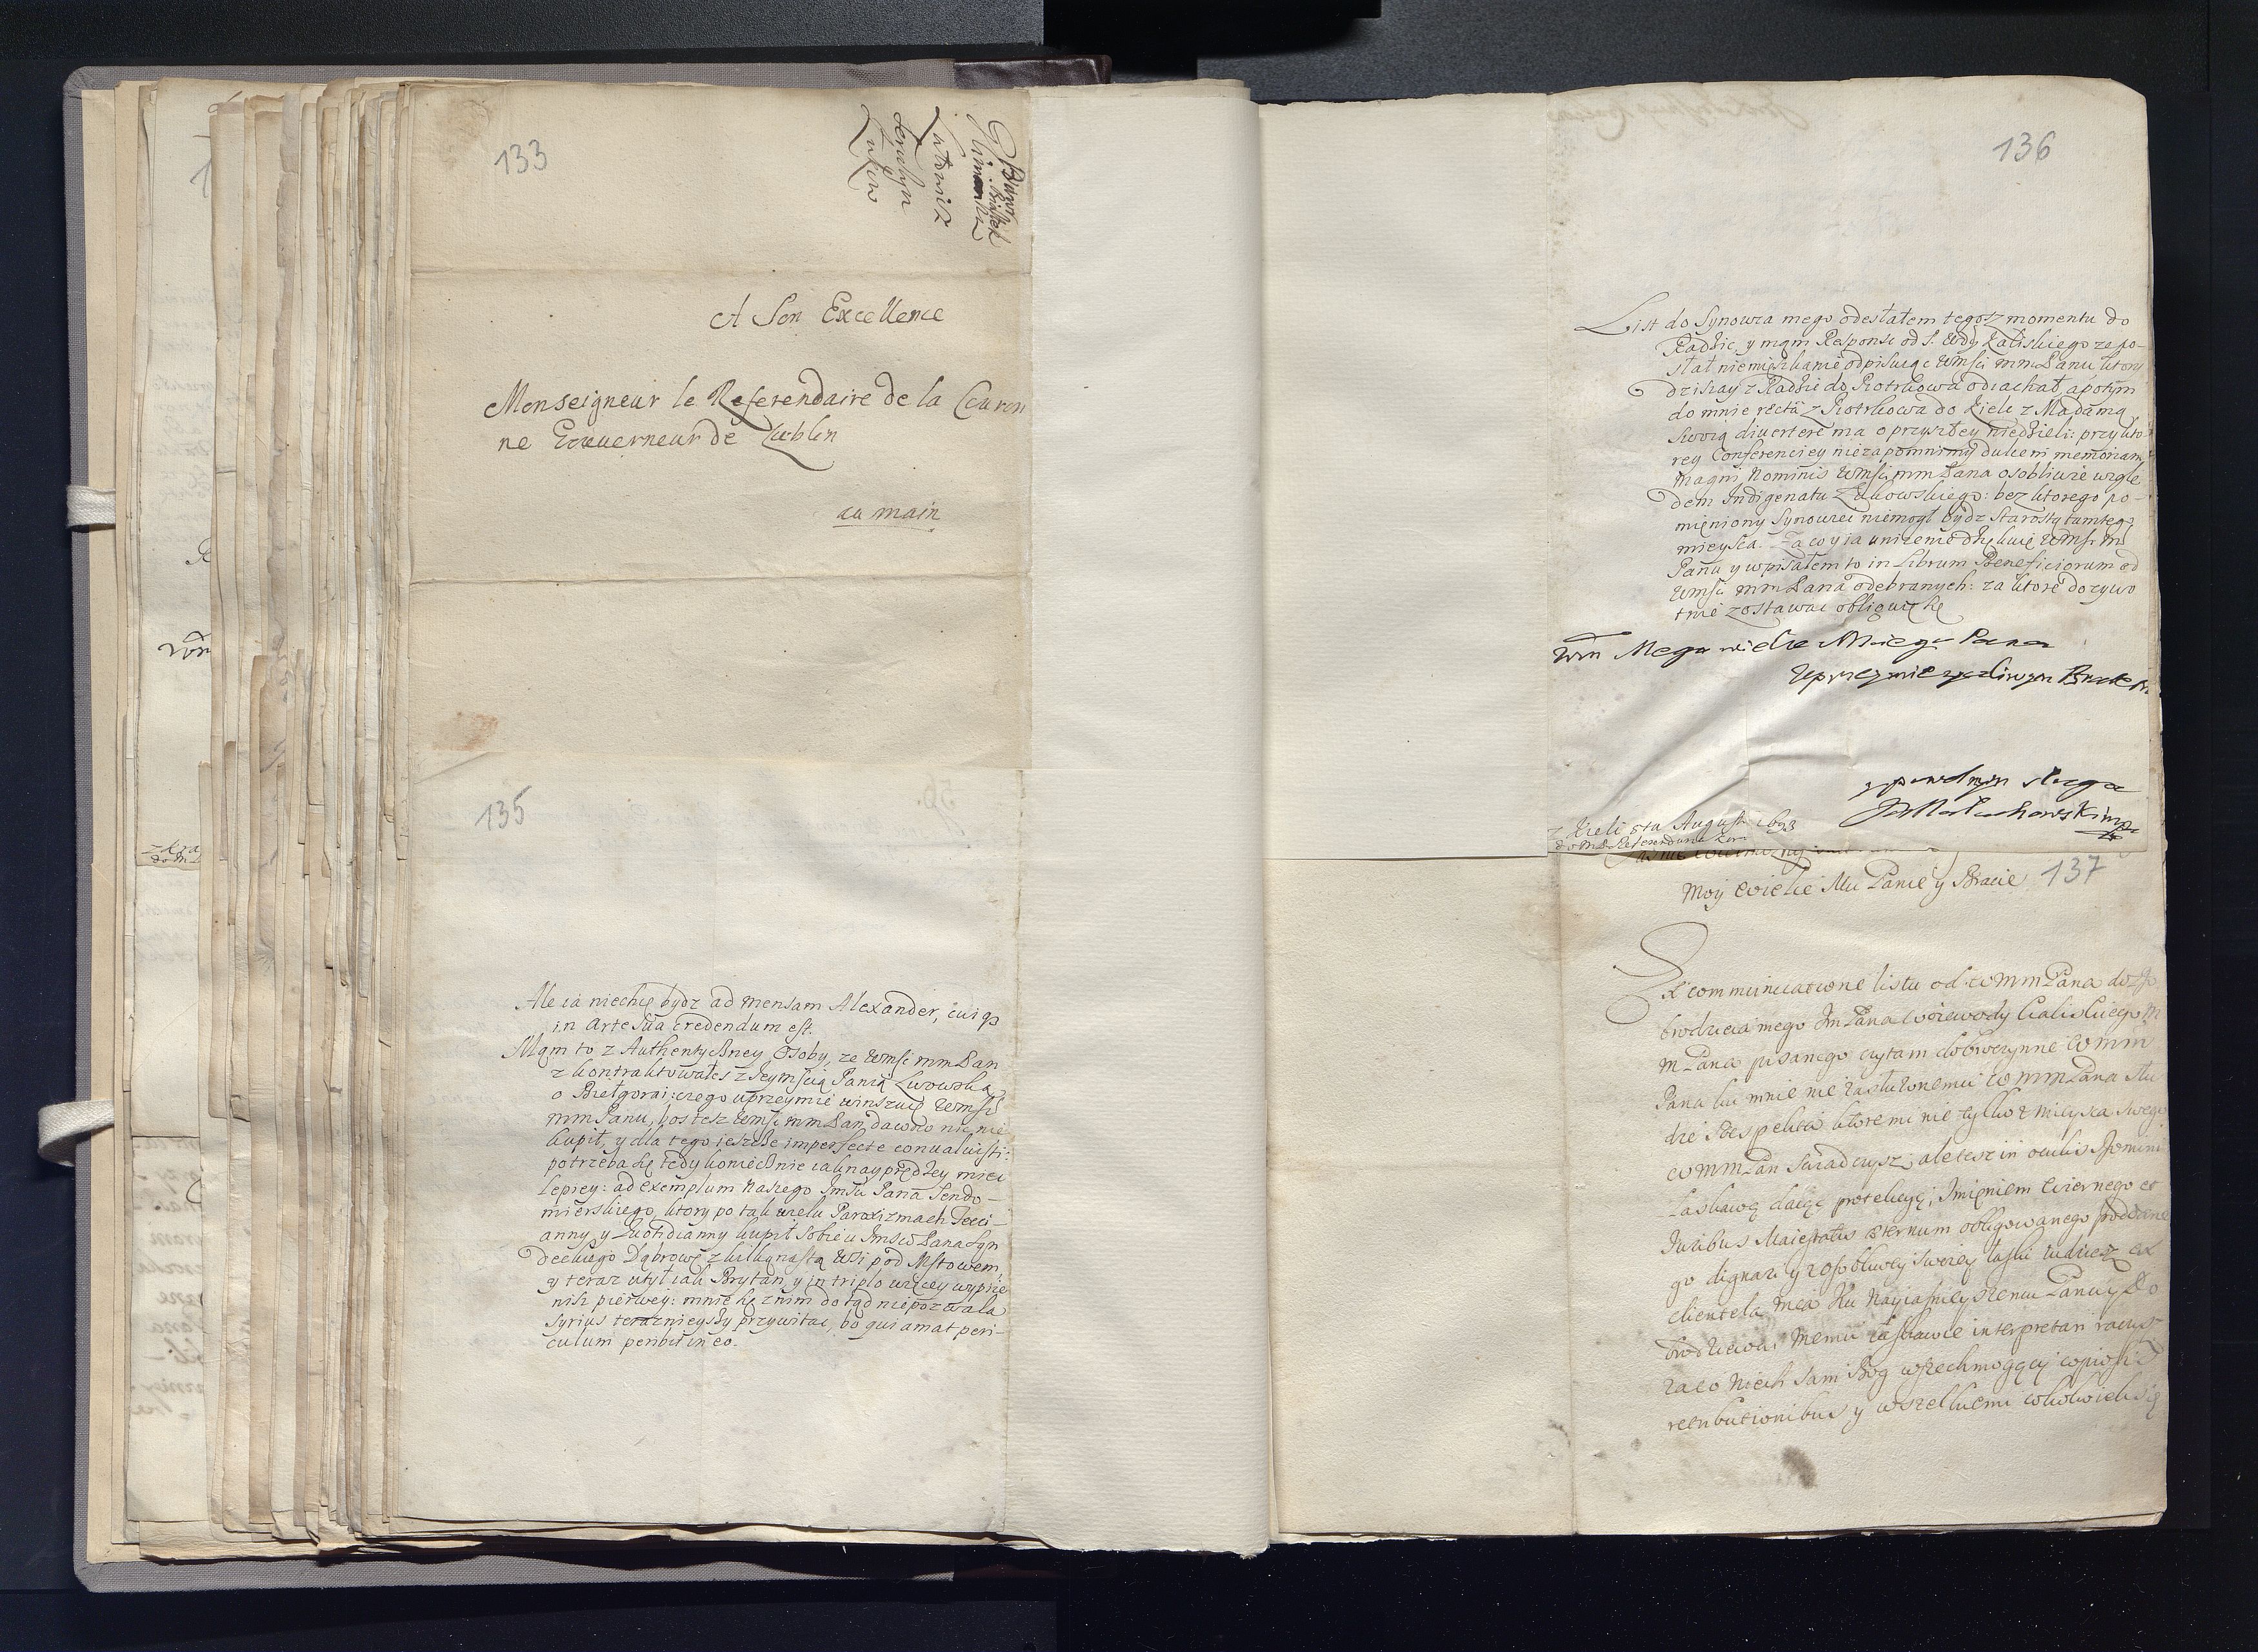 133
A Son Excellence
Monseigneur le Referendaire de la Couron
ne Gouverneur de Lublin
au main
135
Ale ia niechcę bydz ad mensam Alexander, cuiqȝ
in arte sua credendum est.
Mąm to z Authentyczney Osoby, ze Wmsc mm Pan
zkontraktowałes z Jeymścią Panią Lwowską
o Biełgorai: czego uprzeymie winszuię Wmści
mm Panu, bos tesz Wmsc mm Pan dawno nic nie
kupił, y dla tego ieszcze imperfecte convaluisti:
potrzeba się tedy koniecznie iak nayprędzey miec
lepiey: ad exemplum naszego Jmści Pana Sendo-
mierskiego, ktory po tak wielu Paroxizmach Terci-
anny y Quotidianny kupił sobie u Jmsci Pana Syn
deckiego Dąbrowę z kilkunastą Wsi pod Mstowem,
y teraz utył iak Brytan, y in triplo więcey wypiie
nisz pierwey: mnie się z nim dotąd niepozwala
Syrius teraznieyszy przywitac, bo qui amat peri-
culum peribit in eo.
136
List do Synowca mego odesłałem tegosz momentu do
Radzic, y mąm Respons od J. Wdy Kaliskiego ze po-
słał niemieszkanie odpisuiąc Wmści mm Panu ktory
dzisiay z Radzic do Piotrkowa odiachał, a potym
do mnie recta z Piotrkowa do Kielc z Madamą
swoią divertere ma o przyszłey niedzieli: przy kto-
rey Conferenciey niezapomnimy dulcem memoriam
magni Nominis Wmści mm Pana osobliwie wzglę
dem Indigenatu Żukowskiego: bez ktorego po-
mięniony Synowiec niemogł bydz Starostą tamtego
mieysca. Za co y ia unizenie dziękuię Wmsci m
Panu y wpisałem to in Librum Beneficiorum od
Wmsci mm Pana odebranych: za ktore dozywo
tnie zostawac obliguię się
Wm Mego wielce Mciego Pana
Uprzeymie zyczliwym Bratem
y powolnym sługą
JMałachowski mp
z Kielc 8va Augusti 1693
do M P Referendarza Kor
137
Moy wielce Mci Panie y Bracie
Z communicatione listu od W mm Pana do
brodzieia mego Jm Pana Woiewody Kaliskiego m
m Pana pisanego czytam dobroczynne W mm
Pana ku mnie nie zasłuzonemu W mm Pana słu
dze Respekta ktoremi nie tylko z mieysca swego
W mm Pan swiadczysz, ale tesz in oculis Domini
łaskawą daiąc protekcyę, Jmięniem wiernego et
Juribus Maiestatis æternum obligowanego poddane
go dignari y z osobliwey swoiey łaski tudziesz ex
clientela mea ku Nayiasnieyszemu Panu y Do
brodzieiowi memu łaskawie interpretari raczysz
za co niech sam Bog wszechmogący copiosis
retributionibus y wszelkiemi cokolwiek się